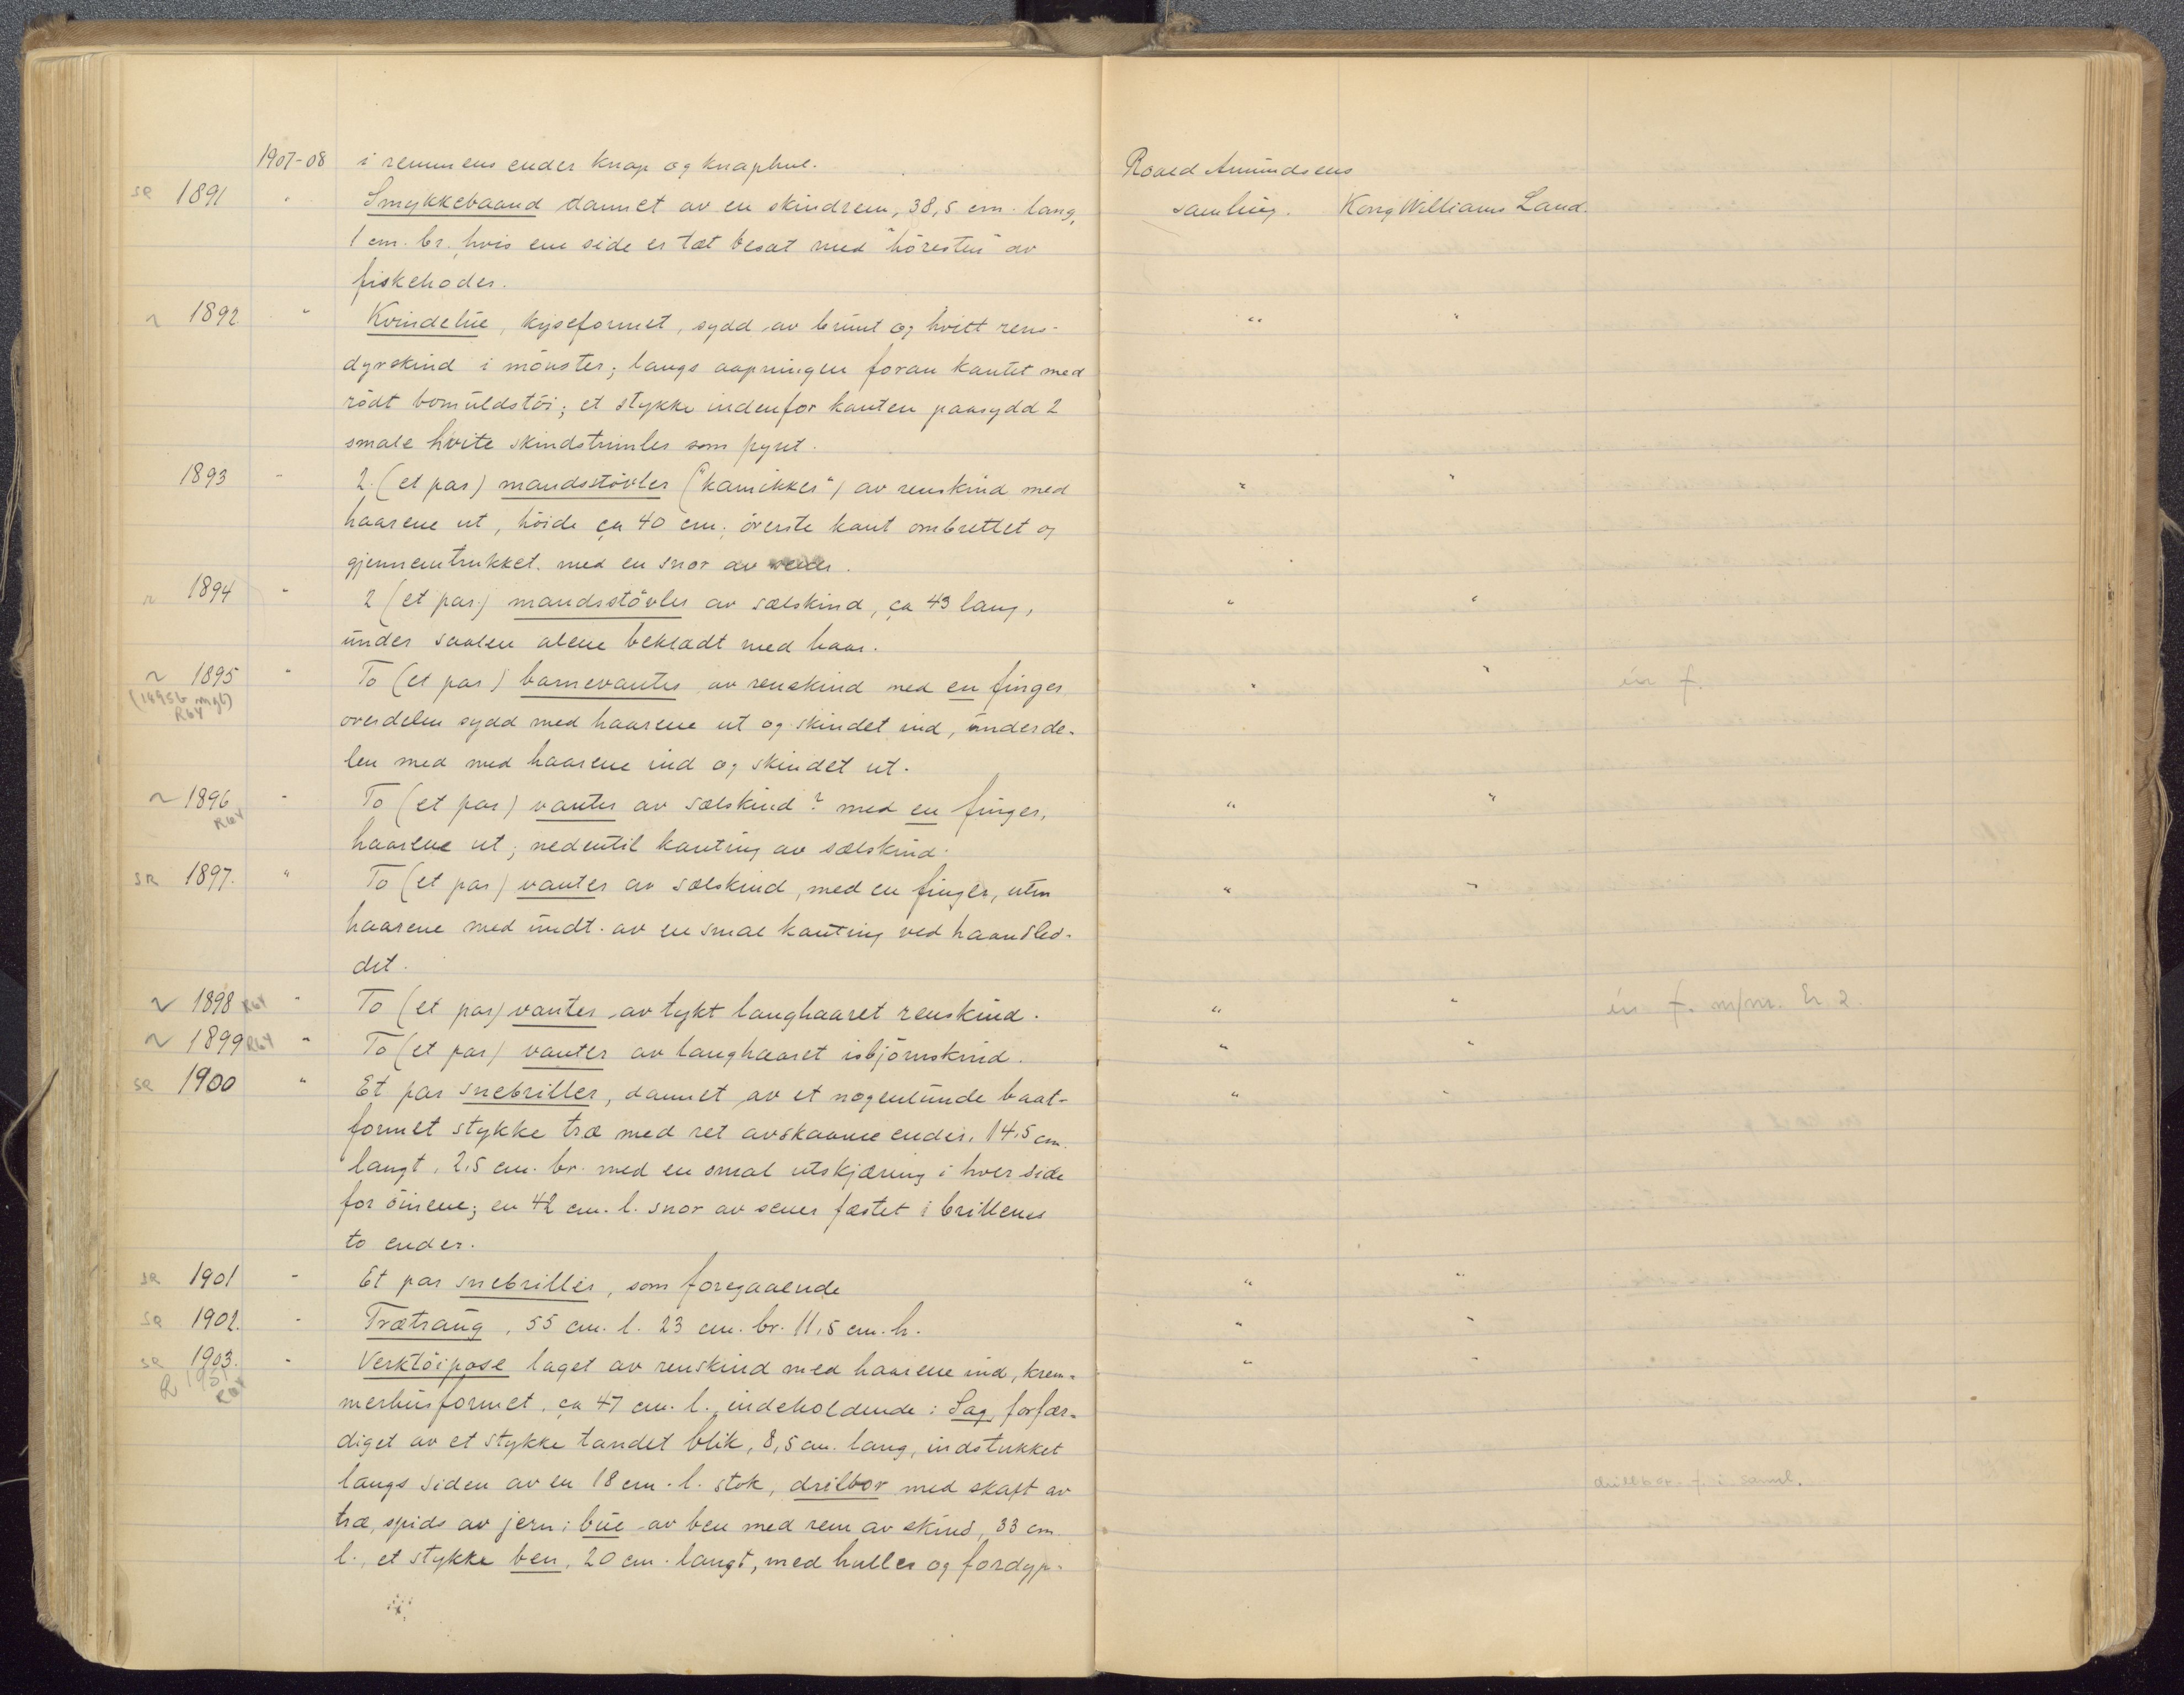 1907-08 i remmens ender knap og knaphul. Roald Amundsens
SR 1891 " Smykkebaand dannet av en skindrem, 38,5 cm. lang, samling. Kong Williams Land.
1 cm. br. hvis ene side er tæt besat med "höresten" av
fiskehoder.
~ 1892 " Kvindelue, kyseformet, sydd av brunt og hvitt rens- " "
dyrskind i mönster; langs aapningen foran kantet med
rödt bomuldstöi; et stykke indenfor kanten paasydd 2
smale hvite skindstrimler som pynt.
1893 " 2 (et par) mandsstövler ("kamikker") av renskind med " "
haarene ut, höide ca 40 cm; överste kant ombrettet og
gjennemtrukket med en snor av
~ 1894 " 2 (et par) mandsstövler av sælskind, ca 43 lang, " "
under saalen alene beklædt med haar.
~ 1895 " To (et par) barnevanter av renskind med en finger " " én f.
(1895b mgl)
R64
overdelen sydd med haarene ut og skindet ind, underde-
len med med haarene ind og skindet ut.
~ 1896 " To (et par) vanter av sælskind? med en finger, " "
R64
haarene ut; nedentil kanting av sælskind.
SR 1897. " To (et par) vanter av sælskind, med en finger, uten " "
haarene med undt. av en smal kanting ved haandled-
det.
~ 1898 R64 " To (et par) vanter av tykt langhaaret renskind. " " én f. m/nr. Er 2.
~ 1899 R64 " To (et par) vanter av langhaaret isbjörnskind. " "
SR 1900 " Et par snebriller, dannet av et nogenlunde baat- " "
formet stykke træ med ret avskaarne ender, 14,5 cm.
langt, 2,5 cm. br. med en smal utskjæring i hver side
for öinene; en 42 cm. l. snor av sener fæstet i brillenes
to ender.
SR 1901 " Et par snebriller, som foregaaende " "
SR 1902. " Trætraug, 55 cm. l. 23 cm. br. 11,5 cm. h. " "
SR 1903. " Verktöipose laget av renskind med haarene ind, kræm- " "
R64
merhusformet, ca 47 cm. l., indeholdende: Sag, forfær-
diget av et stykke tandet blik, 8,5 cm. lang, indstukket
langs siden av en 18 cm. l. stok, drilbor med skaft av drillbor f. i saml.
træ, spids av jern; bue av ben med rem av skind, 33 cm
l., et stykke ben, 20 cm. langt, med huller og fordyp-